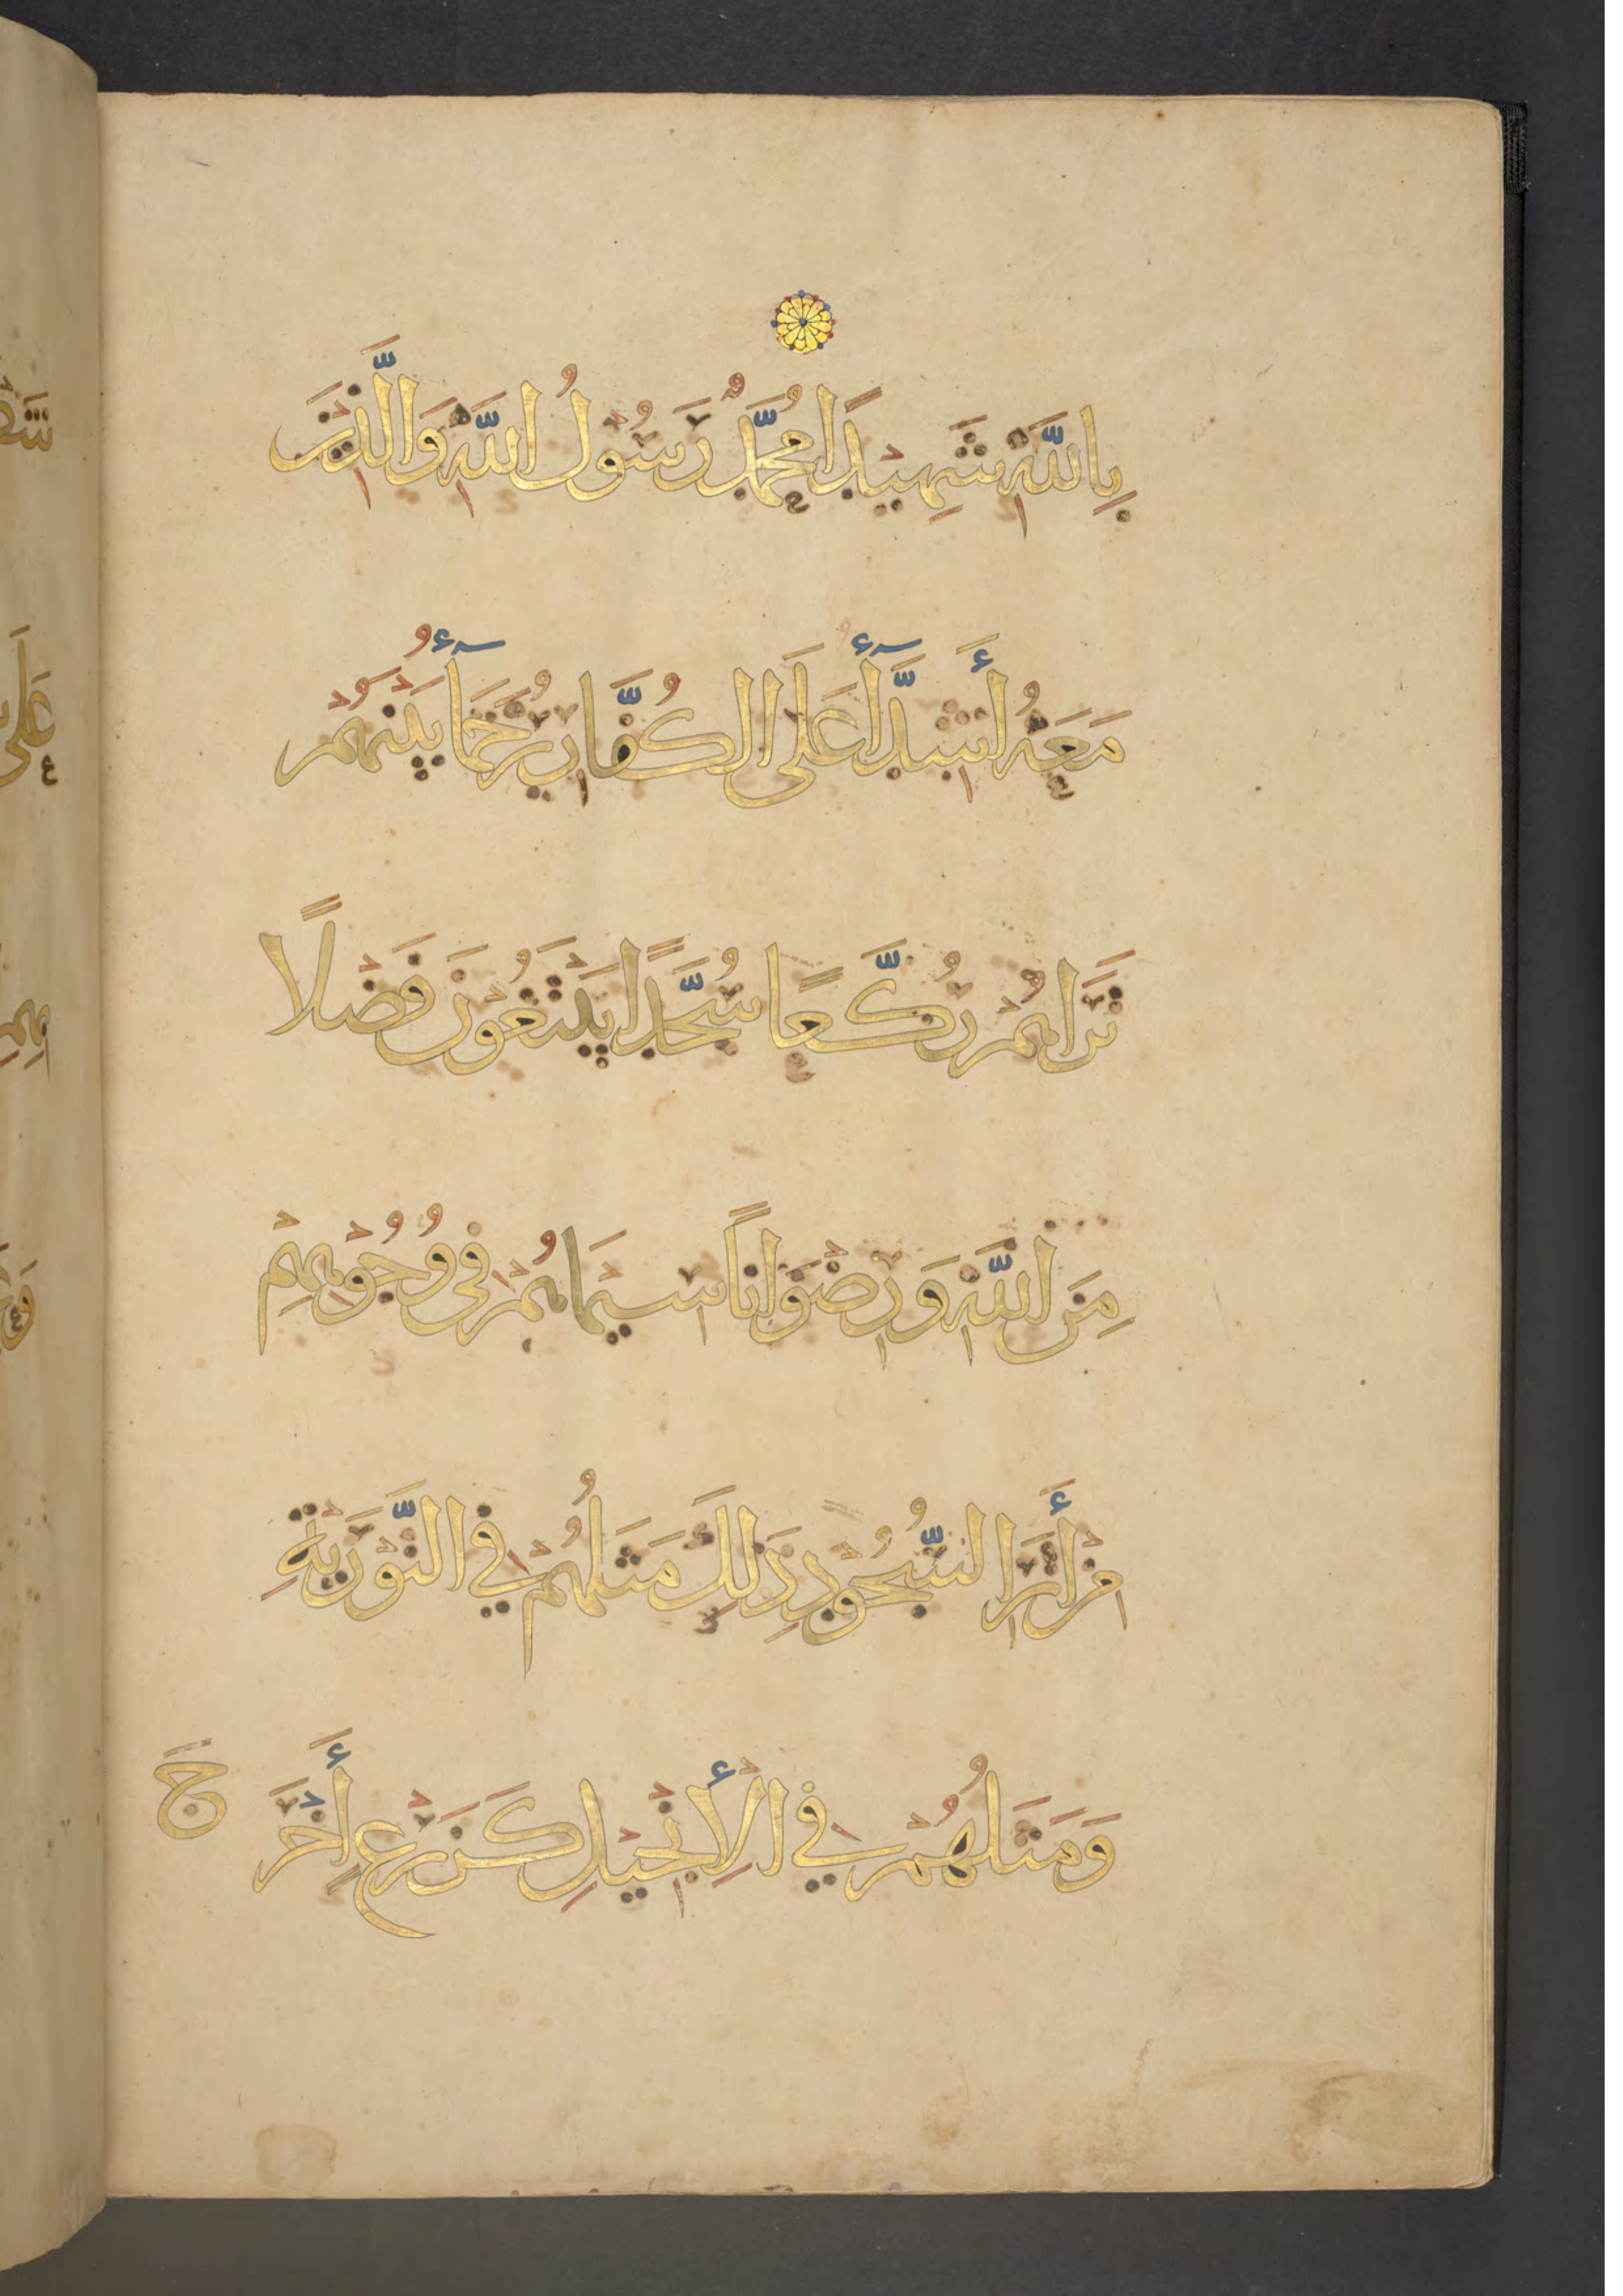 بِاللَّهِ شَهِيدًا مُحَمَّدٌ رَسُولُ اللَّهِ وَالَّذِينَ
مَعَهُ أَشِدَّآءُ عَلَى الْكُفَّارِ رُحَمَآءُ بَيْنَهُمْ
تَرَاهُمْ رُكَّعًا سُجَّدًا يَبْتَغُونَ فَضْلًا
مِنَ اللَّهِ وَرِضْوَانًا سِيمَاهُمْ فِي وُجُوهِهِمْ
مِنْ أَثَرِ السُّجُودِ ذَلِكَ مَثَلُهُمْ فِي التَّوْرَيةِ
وَمَثَلُهُمْ فِي الْإِنْجِيلِ كَزَرْعٍ أَخْرَ
جَ